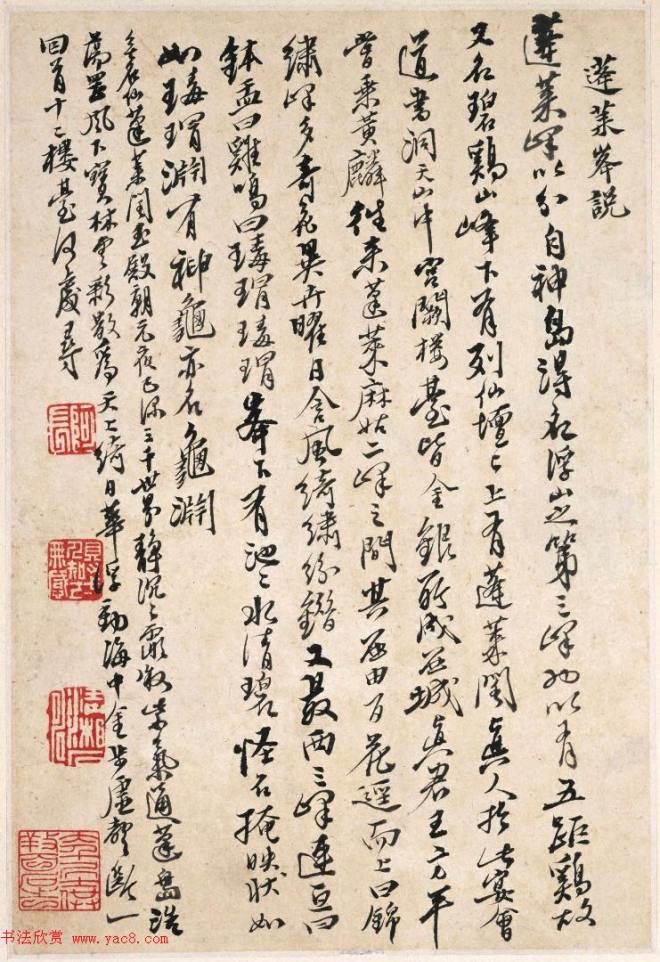 蓬萊峯說
蓬萊峰以分自神島得名浮山之第三峰也以有五距鷄故
又名碧鷄山峰下有列仙壇壇上有蓬萊閣真人於此宴會
道書洞天山中宮闕樓臺皆金銀所成 真君王方平
嘗乘黃麟往來蓬萊麻姑二峰之間其 由百花逕而上曰錦
繡峰多奇花異卉曜日含風綺繡紛錯又最西三峰連亘曰
鉢盂曰雞鳴曰瑇瑁瑇瑁峯下有池池水清碧怪石掩映狀如
如瑇瑁淵有神龜亦名龜淵
仙蓬萊閣玉殿朝元夜已深三千世界靜沉沉霞 紫氣通蓬島浩
萬里風下寶林雲影散為天上綺日華浮動海中金步虛聲斷一
回首十二樓臺何處尋
书法欣赏 www.yac8.com